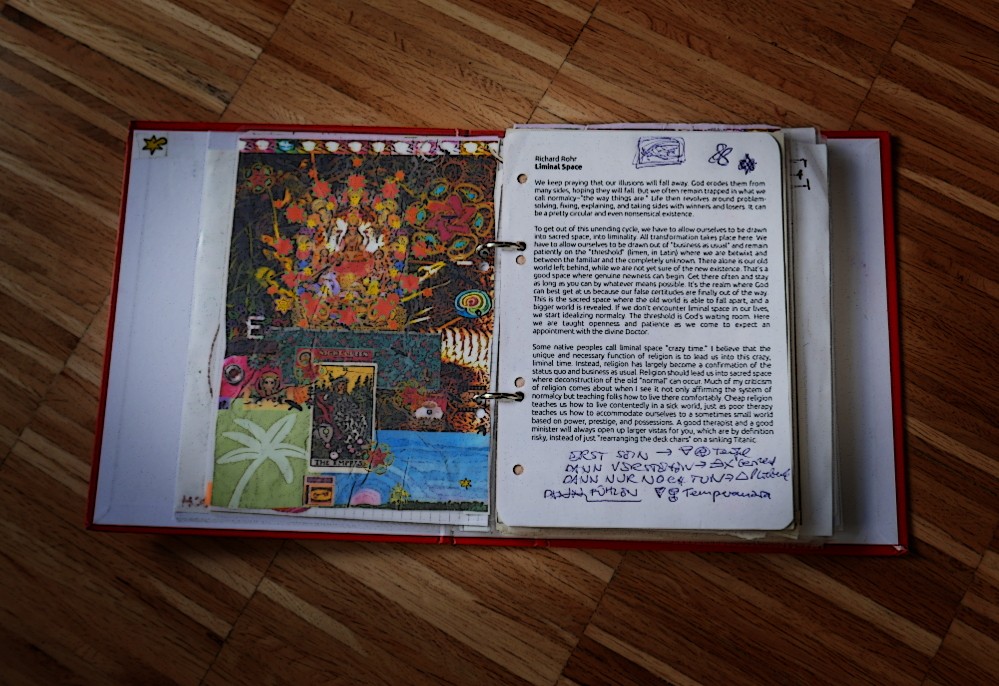 E
THE EMPEROR
Richard Rohr
Liminal Space
We keep praying that our illusions will fall away. God erodes them from
many sides, hoping they will fall. But we often remain trapped in what we
call normalcy-"the way things are." Life then revolves around problem-
solving, fixing, explaining, and taking sides with winners and losers. It can
be a pretty circular and even nonsensical existence.
To get out of this unending cycle, we have to allow ourselves to be drawn
into sacred space, into liminality. All transformation takes place here. We
have to allow ourselves to be drawn out of "business as usual" and remain
patiently on the "threshold" (limen, in Latin) where we are betwixt and
between the familiar and the completely unknown. There alone is our old
world left behind, while we are not yet sure of the new existence. That's a
good space where genuine newness can begin. Get there often and stay
as long as you can by whatever means possible. It's the realm where God
can best get at us because our false certitudes are finally out of the way.
This is the sacred space where the old world is able to fall apart, and a
bigger world is revealed. If we don't encounter liminal space in our lives,
we start idealizing normalcy. The threshold is God's waiting room. Here
we are taught openness and patience as we come to expect an
appointment with the divine Doctor.
Some native peoples call liminal space "crazy time." I believe that the
unique and necessary function of religion is to lead us into this crazy,
liminal time. Instead, religion has largely become a confirmation of the
status quo and business as usual. Religion should lead us into sacred space
where deconstruction of the old "normal" can occur. Much of my criticism
of religion comes about when I see it not only affirming the system of
normalcy but teaching folks how to live there comfortably. Cheap religion
teaches us how to live contentedly in a sick world, just as poor therapy
teaches us how to accommodate ourselves to a sometimes small world
based on power, prestige, and possessions. A good therapist and a good
minister will always open up larger vistas for you, which are by definition
risky, instead of just "rearranging the deck chairs" on a sinking Titanic.
ERST SEIN →
DANN VERSTEHEN →
DANN NUR NOCH TUN →
FÜHLEN Temperance